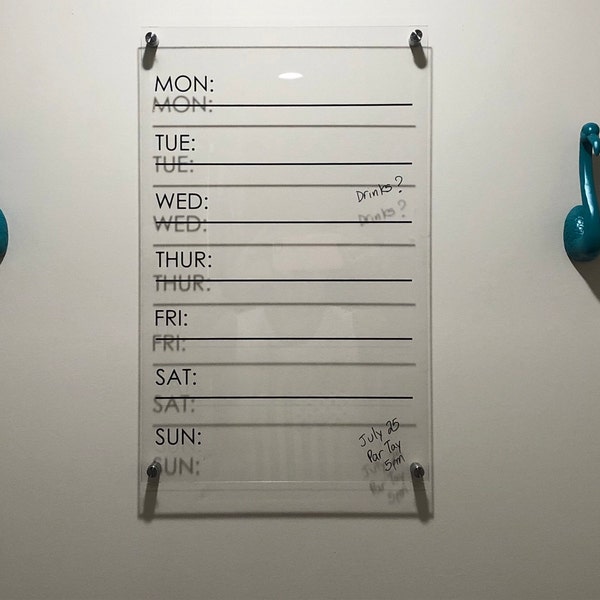 MON:
TUE:
WED: Drinks?
THUR:
FRI:
SAT:
SUN: July 25
Par Tay
5pm